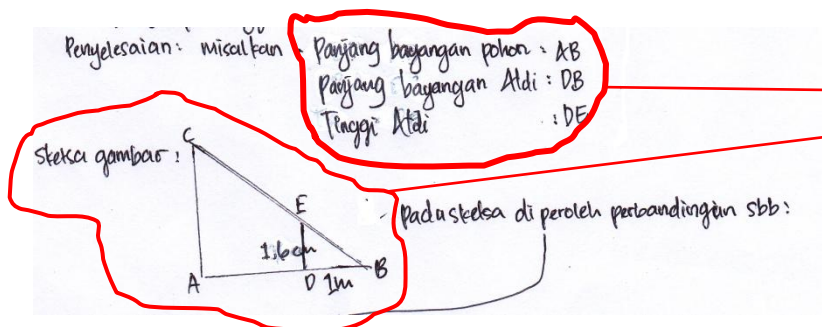 Penyelesaian: misalkan - Panjang bayangan pohon : AB
Panjang bayangan Aldi : DB
Tinggi Aldi : DE
Sketsa gambar :
C
E
- pada sketsa di peroleh perbandingan sbb:
1,6 cm
A D 1m B